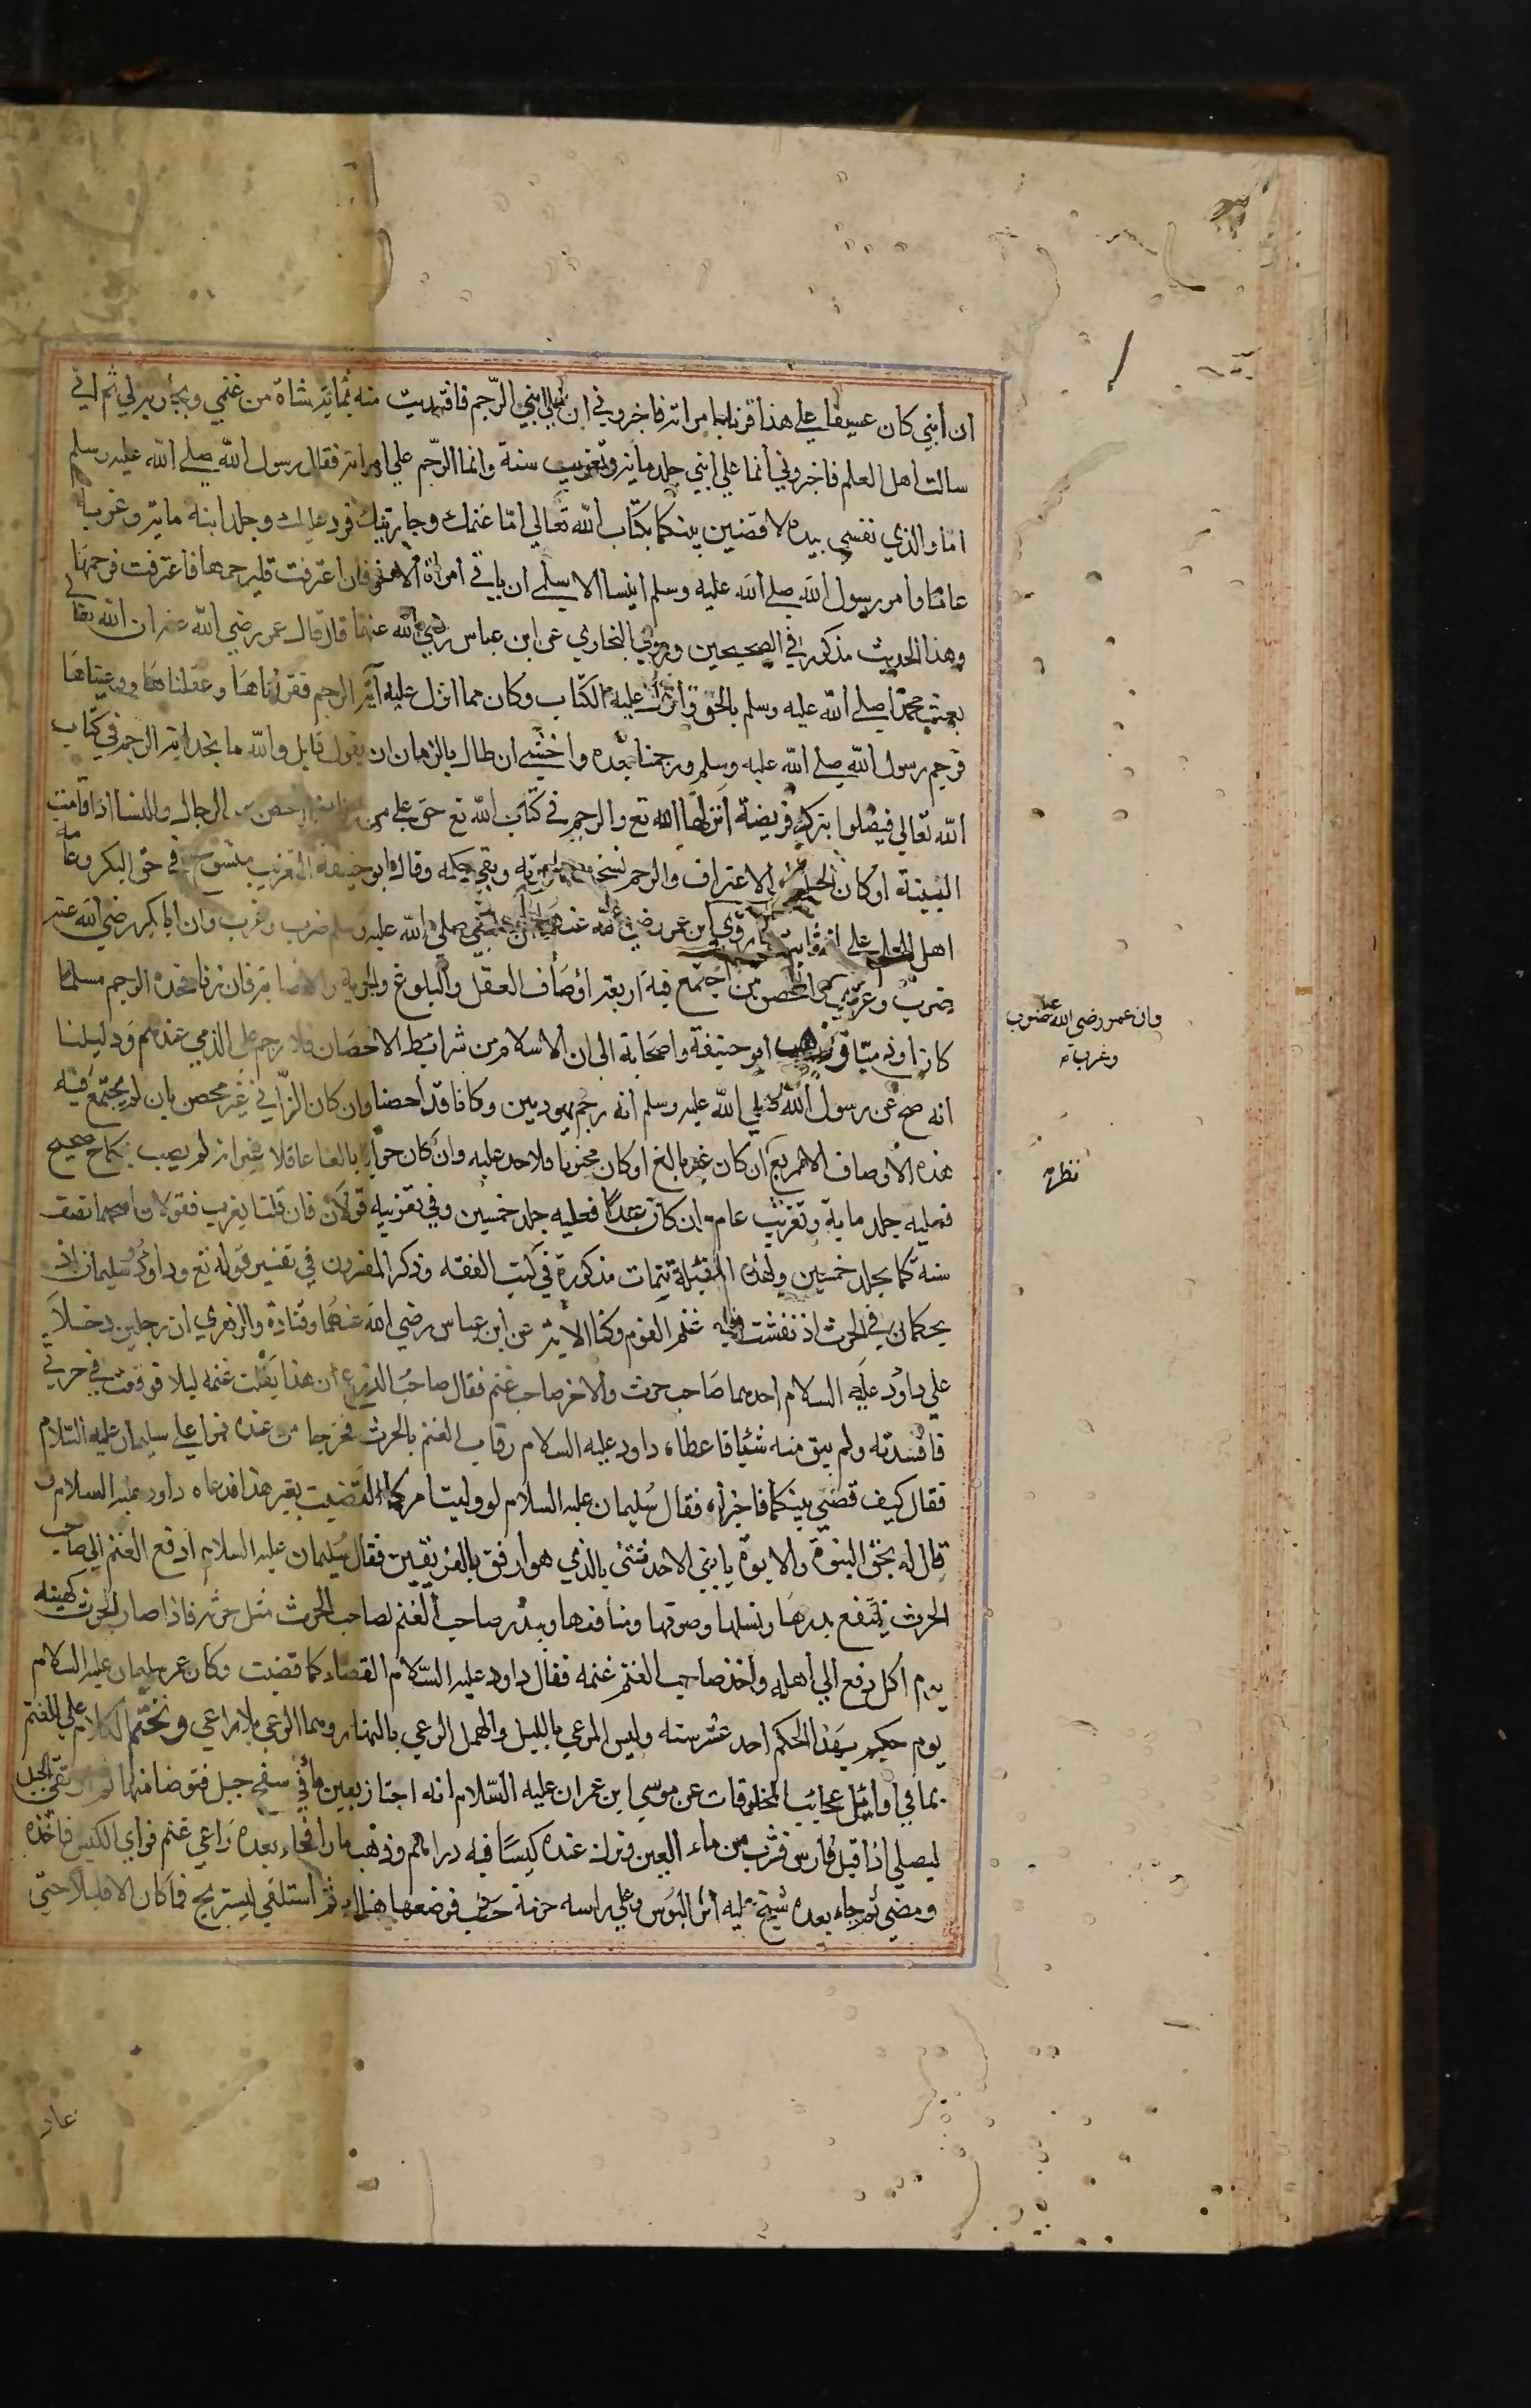 ان ابني كان عسيفا علي هذا فزنا بامراته فاخبروني ان علي ابني الرجم فافتديت منه بمائة شاة من غنمي وبجارية لي ثم اني
سالت اهل العلم فاخبروني انما علي ابني جلد ماية وتغريب سنة وانما الرجم علي امراته فقال رسول الله صلي الله عليه وسلم
اما والذي نفسي بيده لاقضين بينكما بكتاب الله تعالي اما غنمك وجاريتك فرد عليك وجلد ابنه ماية وغربه
عاما وامر رسول الله صلي الله عليه وسلم انيسا الاسلمي ان ياتي امراة الاخر فان اعترفت فليرجمها فاعترفت فرجمها
وهذا الحديث مذكور في الصحيحين وروي البخاري عن ابن عباس رضي الله عنهما قال قال عمر رضي الله عنه ان الله تعالي
بعث محمدا صلي الله عليه وسلم بالحق وانزل عليه الكتاب وكان مما انزل عليه آية الرجم فقراناها وعقلناها ووعيناها
فرجم رسول الله صلي الله عليه وسلم ورجمنا بعده واخشي ان طال بالزمان ان يقول قايل والله ما نجد اية الرجم في كتاب
الله تعالي فيضلوا بترك فريضة انزلها الله تع والرجم في كتاب الله تع حق علي من احصن من الرجال والنسا اذا قامت
البينة او كان الحبل او الاعتراف والرجم نسخ وبقي حكمه وقال ابو حنيفة التغريب منسوخ في حق البكر وعامة
اهل العلم علي انه ثابت لما روي ابن عمر رضي الله عنهما ان النبي صلي الله عليه وسلم ضرب وغرب وان ابا بكر رضي الله عنه
ضرب وغرب المحصن من اجتمع فيه اربعة اوصاف العقل والبلوغ والحرية والاصابة فان زنا فحده الرجم مسلما
كان او ذميا وذهب ابو حنيفة واصحابه الي ان الاسلام من شرائط الاحصان فلا رجم علي الذمي عندهم ودليلنا
انه صح عن رسول الله صلي الله عليه وسلم انه رجم يهوديين وكانا قد احصنا وان كان الزاني غير محصن بان لم يجتمع فيه
هذه الاوصاف الاربع ان كان غير بالغ او كان مجنونا فلا حد عليه وان كان حرا بالغا عاقلا غير انه لم يصب بنكاح صحيح
فعليه جلد ماية وتغريب عام وان كان عبدا فعليه جلد خمسين وفي تغريبه قولان فان قلنا يغرب فقولان اصحهما نصف
سنة كما يجلد خمسين ولهذه المسئلة تتمات مذكورة في كتب الفقه وذكر المفسرون في تفسير قوله تع وداود وسليمان اذ
يحكمان في الحرث اذ نفشت فيه غنم القوم وكنا الاية عن ابن عباس رضي الله عنهما وقتادة والزهري ان رجلين دخلا
علي داود عليه السلام احدهما صاحب حرث والاخر صاحب غنم فقال صاحب الزرع ان هذا انفلتت غنمه ليلا فوقعت في حرثي
فافسدته ولم يبق منه شئيا فاعطاه داود عليه السلام رقاب الغنم بالحرث فخرجا من عنده فمرا علي سليمان عليه السلام
فقال كيف قضي بينكما فاخبراه فقال سليمان عليه السلام لو وليت امركما لقضيت بغير هذا فدعاه داود عليه السلام و
قال له بحق النبوة والابوة يا بني الا حدثتني بالذي هو ارفق بالفريقين فقال سليمان عليه السلام ادفع الغنم الي صاحب
الحرث ينتفع بدرها ونسلها وصوفها ومنافعها ويبذر صاحب الغنم لصاحب الحرث مثل حرثه فاذا صار الحرث كهيئته
يوم اكل دفع الي اهله واخذ صاحب الغنم غنمه فقال داود عليه السلام القضاء كما قضيت وكان عمر سليمان عليه السلام
يوم حكم بهذا الحكم احد عشر سنه والنفش الرعي بالليل والهمل الرعي بالنهار وهما الرعي بلا راعي ونختم الكلام علي الغنم
بما في اوائل عجايب المخلوقات عن موسي ابن عمران عليه السلام انه اجتاز بعين ما في سفح جبل فتوضا منها ثم ارتقي الجبل
ليصلي اذ اقبل فارس فشرب من ماء العين وترك عنده كيسا فيه دراهم وذهب مارا فجاء بعده راعي غنم فراي الكيس فاخذه
ومضي ثم جاء بعده شيخ عليه اثر البوس وعلي راسه حزمة حطب فوضعها هنالك ثم استلقي ليستريح فما كان الا قليلا حتي
وان عمر رضي الله عنه ضرب
وغرب
عاد